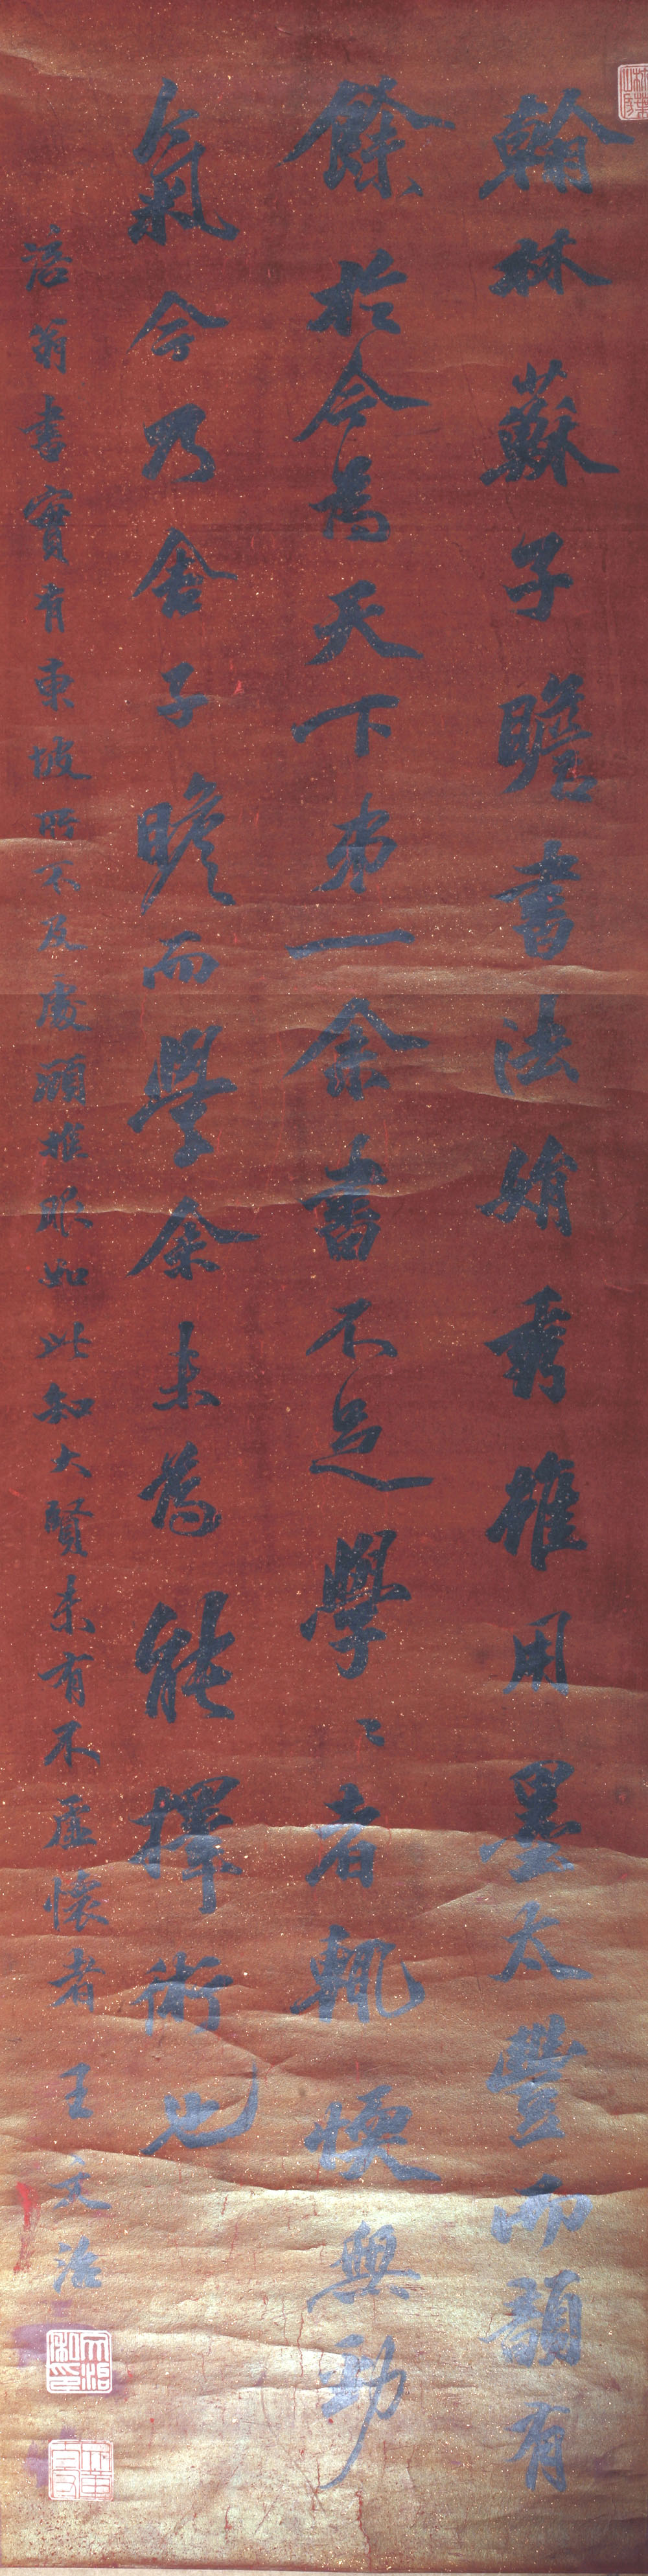 柿葉山房
翰林蘇子瞻書法娟秀雖用墨太豐而韻有
餘於今為天下弟一余書不足學〻者輒愞無勁
氣今乃舍子瞻而學余未為能擇術也
涪翁書實有東坡所不及處顧推服如此知大賢未有不虛懷者王文治
文治私印